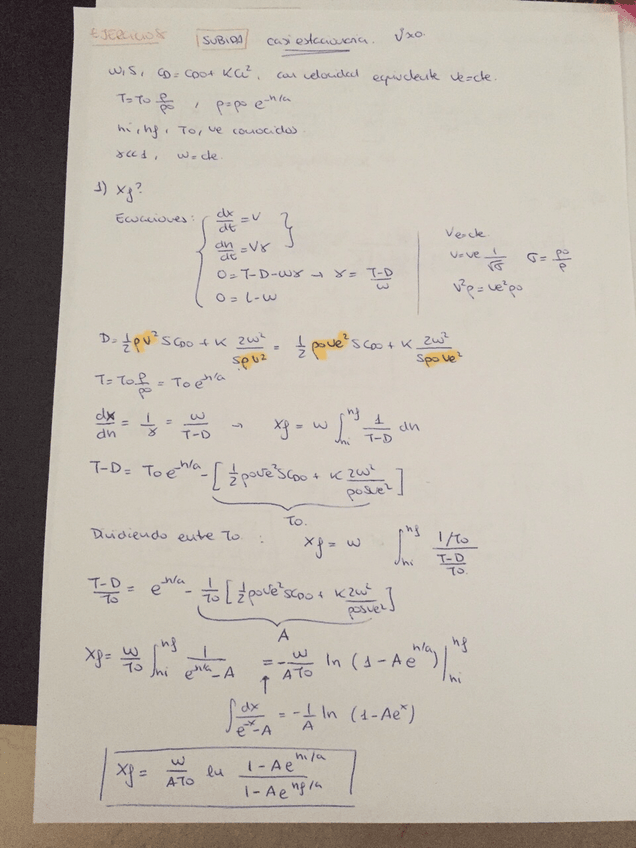 EJERCICIOS SUBIDA casi estacionaria. γ≈0.
W, S, CD = CD0 + KCL², con velocidad equivalente Ve=cte.
T=T0 ρ/ρ0 , ρ=ρ0 e^-h/a
hi, hf, T0, Ve conocidos.
γ<<1, W=cte.
1) Xf?
Ecuaciones: { dx/dt = V
dh/dt = Vγ
0=T-D-Wγ → γ = T-D/W
0=L-W
Ve=cte.
V=Ve 1/√σ σ = ρ0/ρ
V²ρ=Ve²ρ0
D= 1/2 ρV² SCD0 + K 2W²/SρV² = 1/2 ρ0Ve² SCD0 + K 2W²/Sρ0Ve²
T=T0 ρ/ρ0 = T0 e^-h/a
dx/dh = 1/γ = W/T-D → Xf = W ∫hi^hf 1/T-D dh
T-D= T0 e^-h/a - [ 1/2 ρ0Ve²SCD0 + K 2W²/ρ0SVe² ]
T0.
Dividiendo entre T0 : Xf = W ∫hi^hf 1/T0 / T-D/T0
T-D/T0 = e^-h/a - 1/T0 [ 1/2 ρ0Ve²SCD0 + K2W²/ρ0SVe² ]
A
Xf= W/T0 ∫hi^hf 1/e^-h/a - A = - W/AT0 ln (1-Ae^h/a) |hi^hf
∫ dx/e^-x - A = - 1/A ln (1-Ae^x)
Xf = W/AT0 ln 1-Ae^hi/a / 1-Ae^hf/a